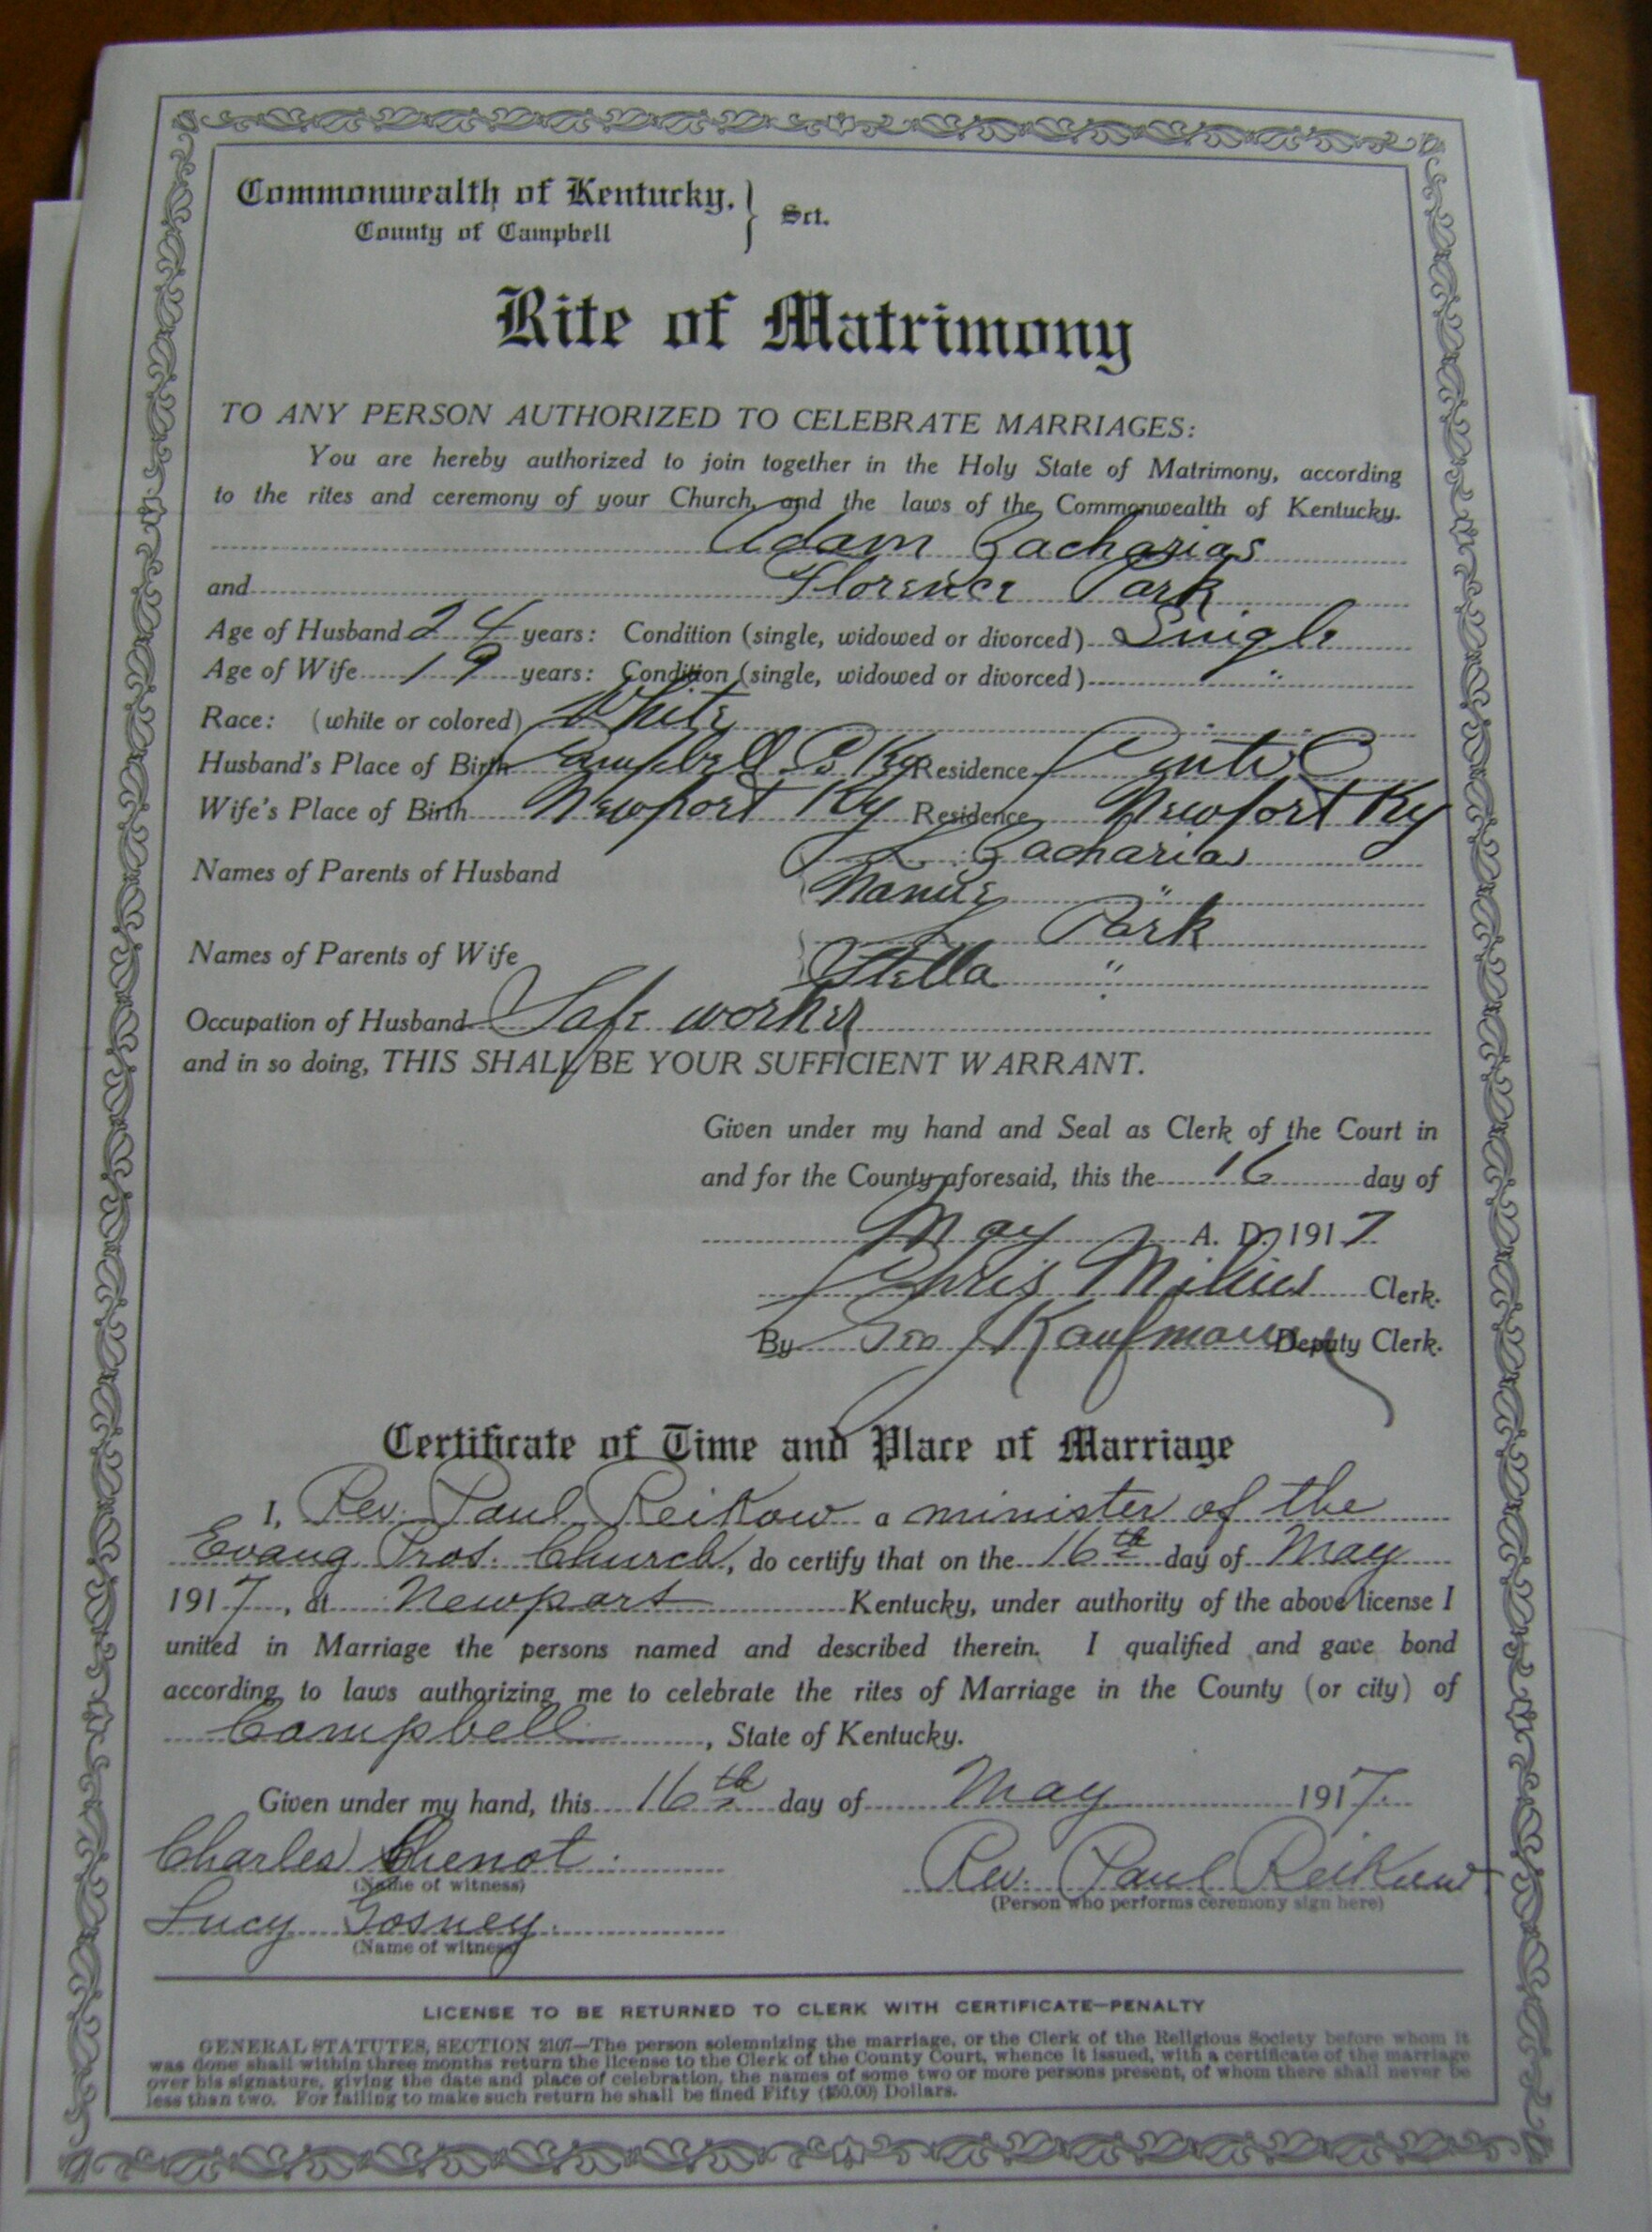 Commonwealth of Kentucky, } Sct.
County of Campbell
Rite of Matrimony
TO ANY PERSON AUTHORIZED TO CELEBRATE MARRIAGES:
You are hereby authorized to join together in the Holy State of Matrimony, according
to the rites and ceremony of your Church, and the laws of the Commonwealth of Kentucky.
Adam Zacharias
and Florence Park
Age of Husband 24 years: Condition (single, widowed or divorced) Single
Age of Wife 19 years: Condition (single, widowed or divorced) "
Race: (white or colored) White
Husband's Place of Birth Campbell Co Ky Residence
Wife's Place of Birth Newport Ky Residence Newport Ky
L. Zacharias
Names of Parents of Husband
Nannie "
L Park
Names of Parents of Wife
Stella "
Occupation of Husband Safe worker
and in so doing, THIS SHALL BE YOUR SUFFICIENT WARRANT.
Given under my hand and Seal as Clerk of the Court in
and for the County aforesaid, this the 16 day of
May A. D. 1917
Chris Clerk.
By Geo J Kaufmann Deputy Clerk.
Certificate of Time and Place of Marriage
I, Rev. Paul Reikow a minister of the
Evang. Prot. Church, do certify that on the 16th day of May
1917, at Newport Kentucky, under authority of the above license I
united in Marriage the persons named and described therein. I qualified and gave bond
according to laws authorizing me to celebrate the rites of Marriage in the County (or city) of
Campbell, State of Kentucky.
Given under my hand, this 16th day of May 1917.
Charles Chenot.
(Name of witness)
Rev. Paul Reikow.
(Person who performs ceremony sign here)
Lucy Gosney.
(Name of witness)
LICENSE TO BE RETURNED TO CLERK WITH CERTIFICATE—PENALTY
GENERAL STATUTES, SECTION 2107—The person solemnizing the marriage, or the Clerk of the Religious Society before whom it
was done shall within three months return the license to the Clerk of the County Court, whence it issued, with a certificate of the marriage
over his signature, giving the date and place of celebration, the names of some two or more persons present, of whom there shall never be
less than two. For failing to make such return he shall be fined Fifty ($50.00) Dollars.